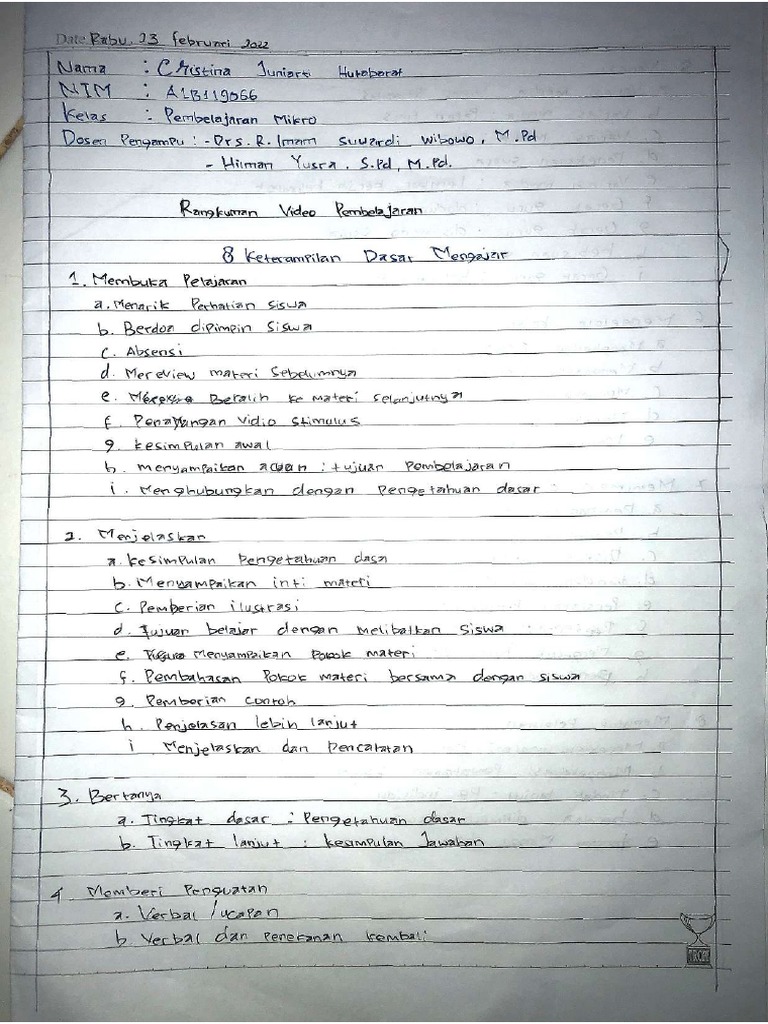 Date Rabu, 23 februari 2022
Nama : Cristina Juniarti Hutabarat
NIM : A1B119066
Kelas : Pembelajaran Mikro
Dosen Pengampu : - Drs. R. Imam Suwardi Wibowo, M.Pd
- Hilman Yusra, S.Pd, M.Pd.
Rangkuman Video Pembelajaran
8 Keterampilan Dasar Mengajar
1. Membuka Pelajaran
a. Menarik Perhatian Siswa
b. Berdoa dipimpin Siswa
c. Absensi
d. Mereview materi Sebelumnya
e. Beralih ke materi selanjutnya
f. Penayangan vidio stimulus
g. kesimpulan awal
h. menyampaikan acuan : tujuan pembelajaran
i. Menghubungkan dengan pengetahuan dasar
2. Menjelaskan
a. kesimpulan pengetahuan dasa
b. Menyampaikan inti materi
c. Pemberian ilustrasi
d. Tujuan belajar dengan melibatkan siswa
e. Menyampaikan Pokok materi
f. Pembahasan Pokok materi bersama dengan siswa
g. Pemberian contoh
h. Penjelasan lebih lanjut
i Menjelaskan dan pencatatan
3. Bertanya
a. Tingkat dasar : Pengetahuan dasar
b. Tingkat lanjut : kesimpulan Jawaban
4. Memberi Penguatan
a. Verbal / ucapan
b. Verbal dan penekanan kembali